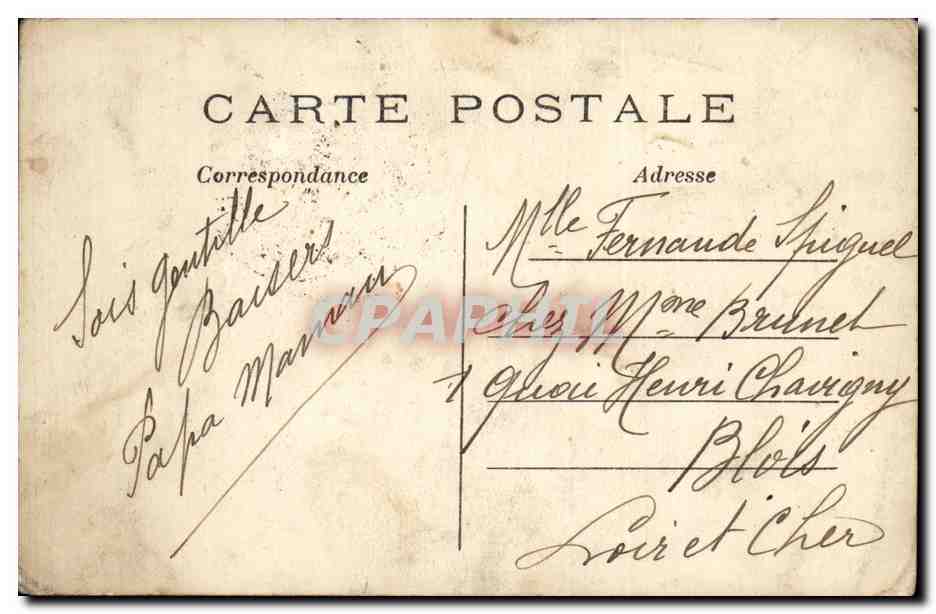 CARTE POSTALE
Correspondance
Adresse
Sois gentille
Baisers
Papa Maman
Mlle Fernande Spiguel
Chez Mme Brunet
1 Quai Henri Chavigny
Blois
Loir et Cher
CPAPHIL